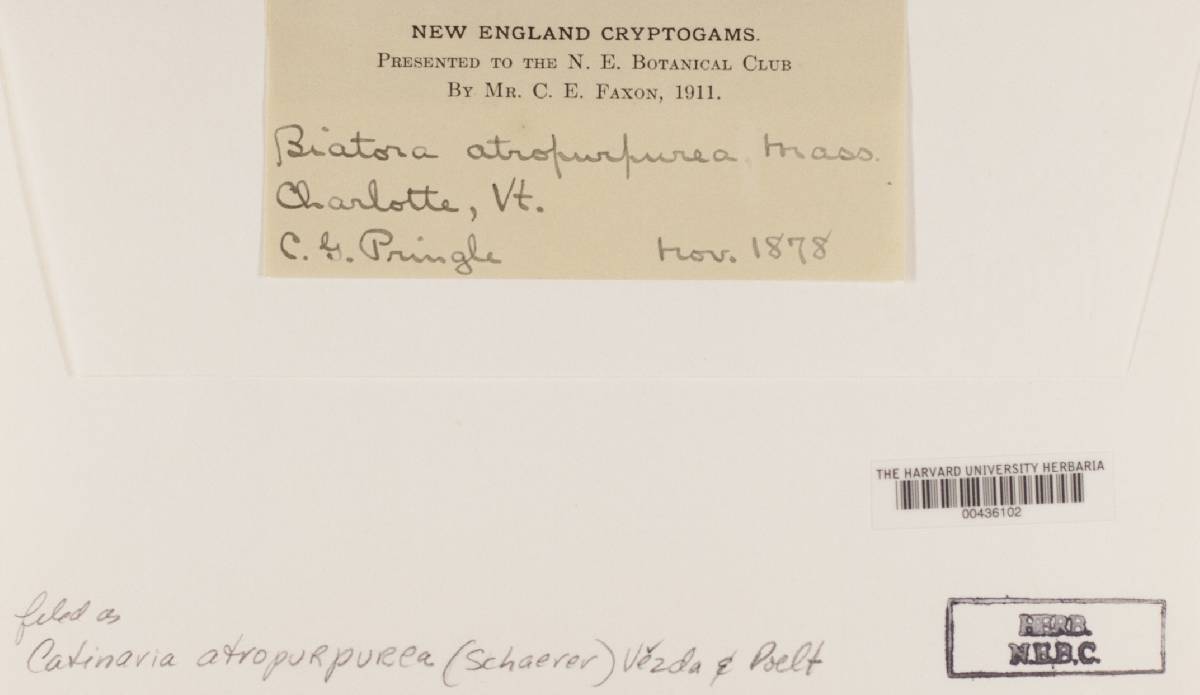 NEW ENGLAND CRYPTOGAMS.
PRESENTED TO THE N. E. BOTANICAL CLUB
BY MR. C. E. FAXON, 1911.
Biatora atropurpurea, Mass.
Charlotte, Vt.
C. G. Pringle Nov. 1878
THE HARVARD UNIVERSITY HERBARIA
00436102
filed as
Catinaria atropurpurea (Schaerer) Vězda & Poelt
HERB.
N.E.B.C.